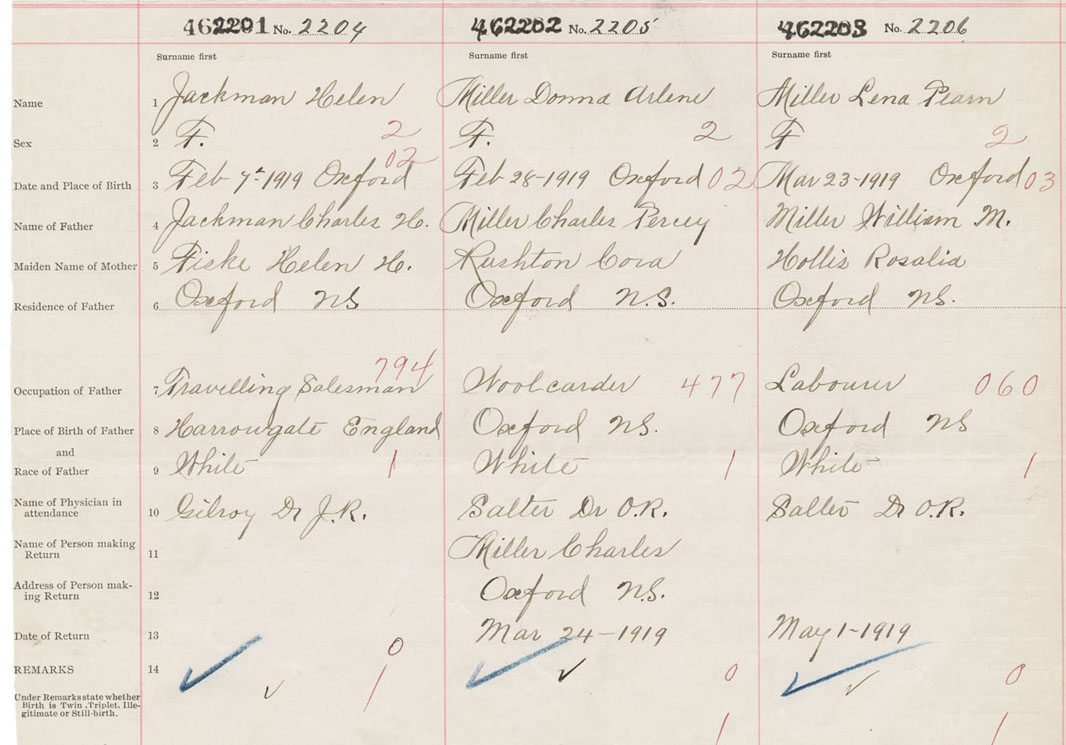 462201 No. 2204 462202 No. 2205 462203 No. 2206
Surname first Surname first Surname first
Name 1 Jackman Helen Miller Donna Arlene Miller Lena Pearn
Sex 2 F. 2 F. 2 F 2
02
Date and Place of Birth 3 Feb 7th 1919 Oxford Feb 28-1919 Oxford 02 Mar 23-1919 Oxford 03
Name of Father 4 Jackman Charles H. Miller Charles Percy Miller William M.
Maiden Name of Mother 5 Fiske Helen H. Rushton Cora Hollis Rosalia
Residence of Father 6 Oxford NS Oxford N.S. Oxford NS.
794
Occupation of Father 7 Travelling Salesman Woolcarder 477 Labourer 060
Place of Birth of Father 8 Harrowgate England Oxford NS. Oxford NS
and
Race of Father 9 White 1 White 1 White 1
Name of Physician in
attendance 10 Gilroy Dr J.R. Salter Dr O.R. Salter Dr O.R.
Name of Person making
Return 11 Miller Charles
Address of Person mak-
ing Return 12 Oxford N.S.
Date of Return 13 Mar 24-1919 May 1-1919
0
REMARKS 14 0 0
Under Remarks state whether 1
Birth is Twin, Triplet, Ille-
gitimate or Still-birth.
1 1